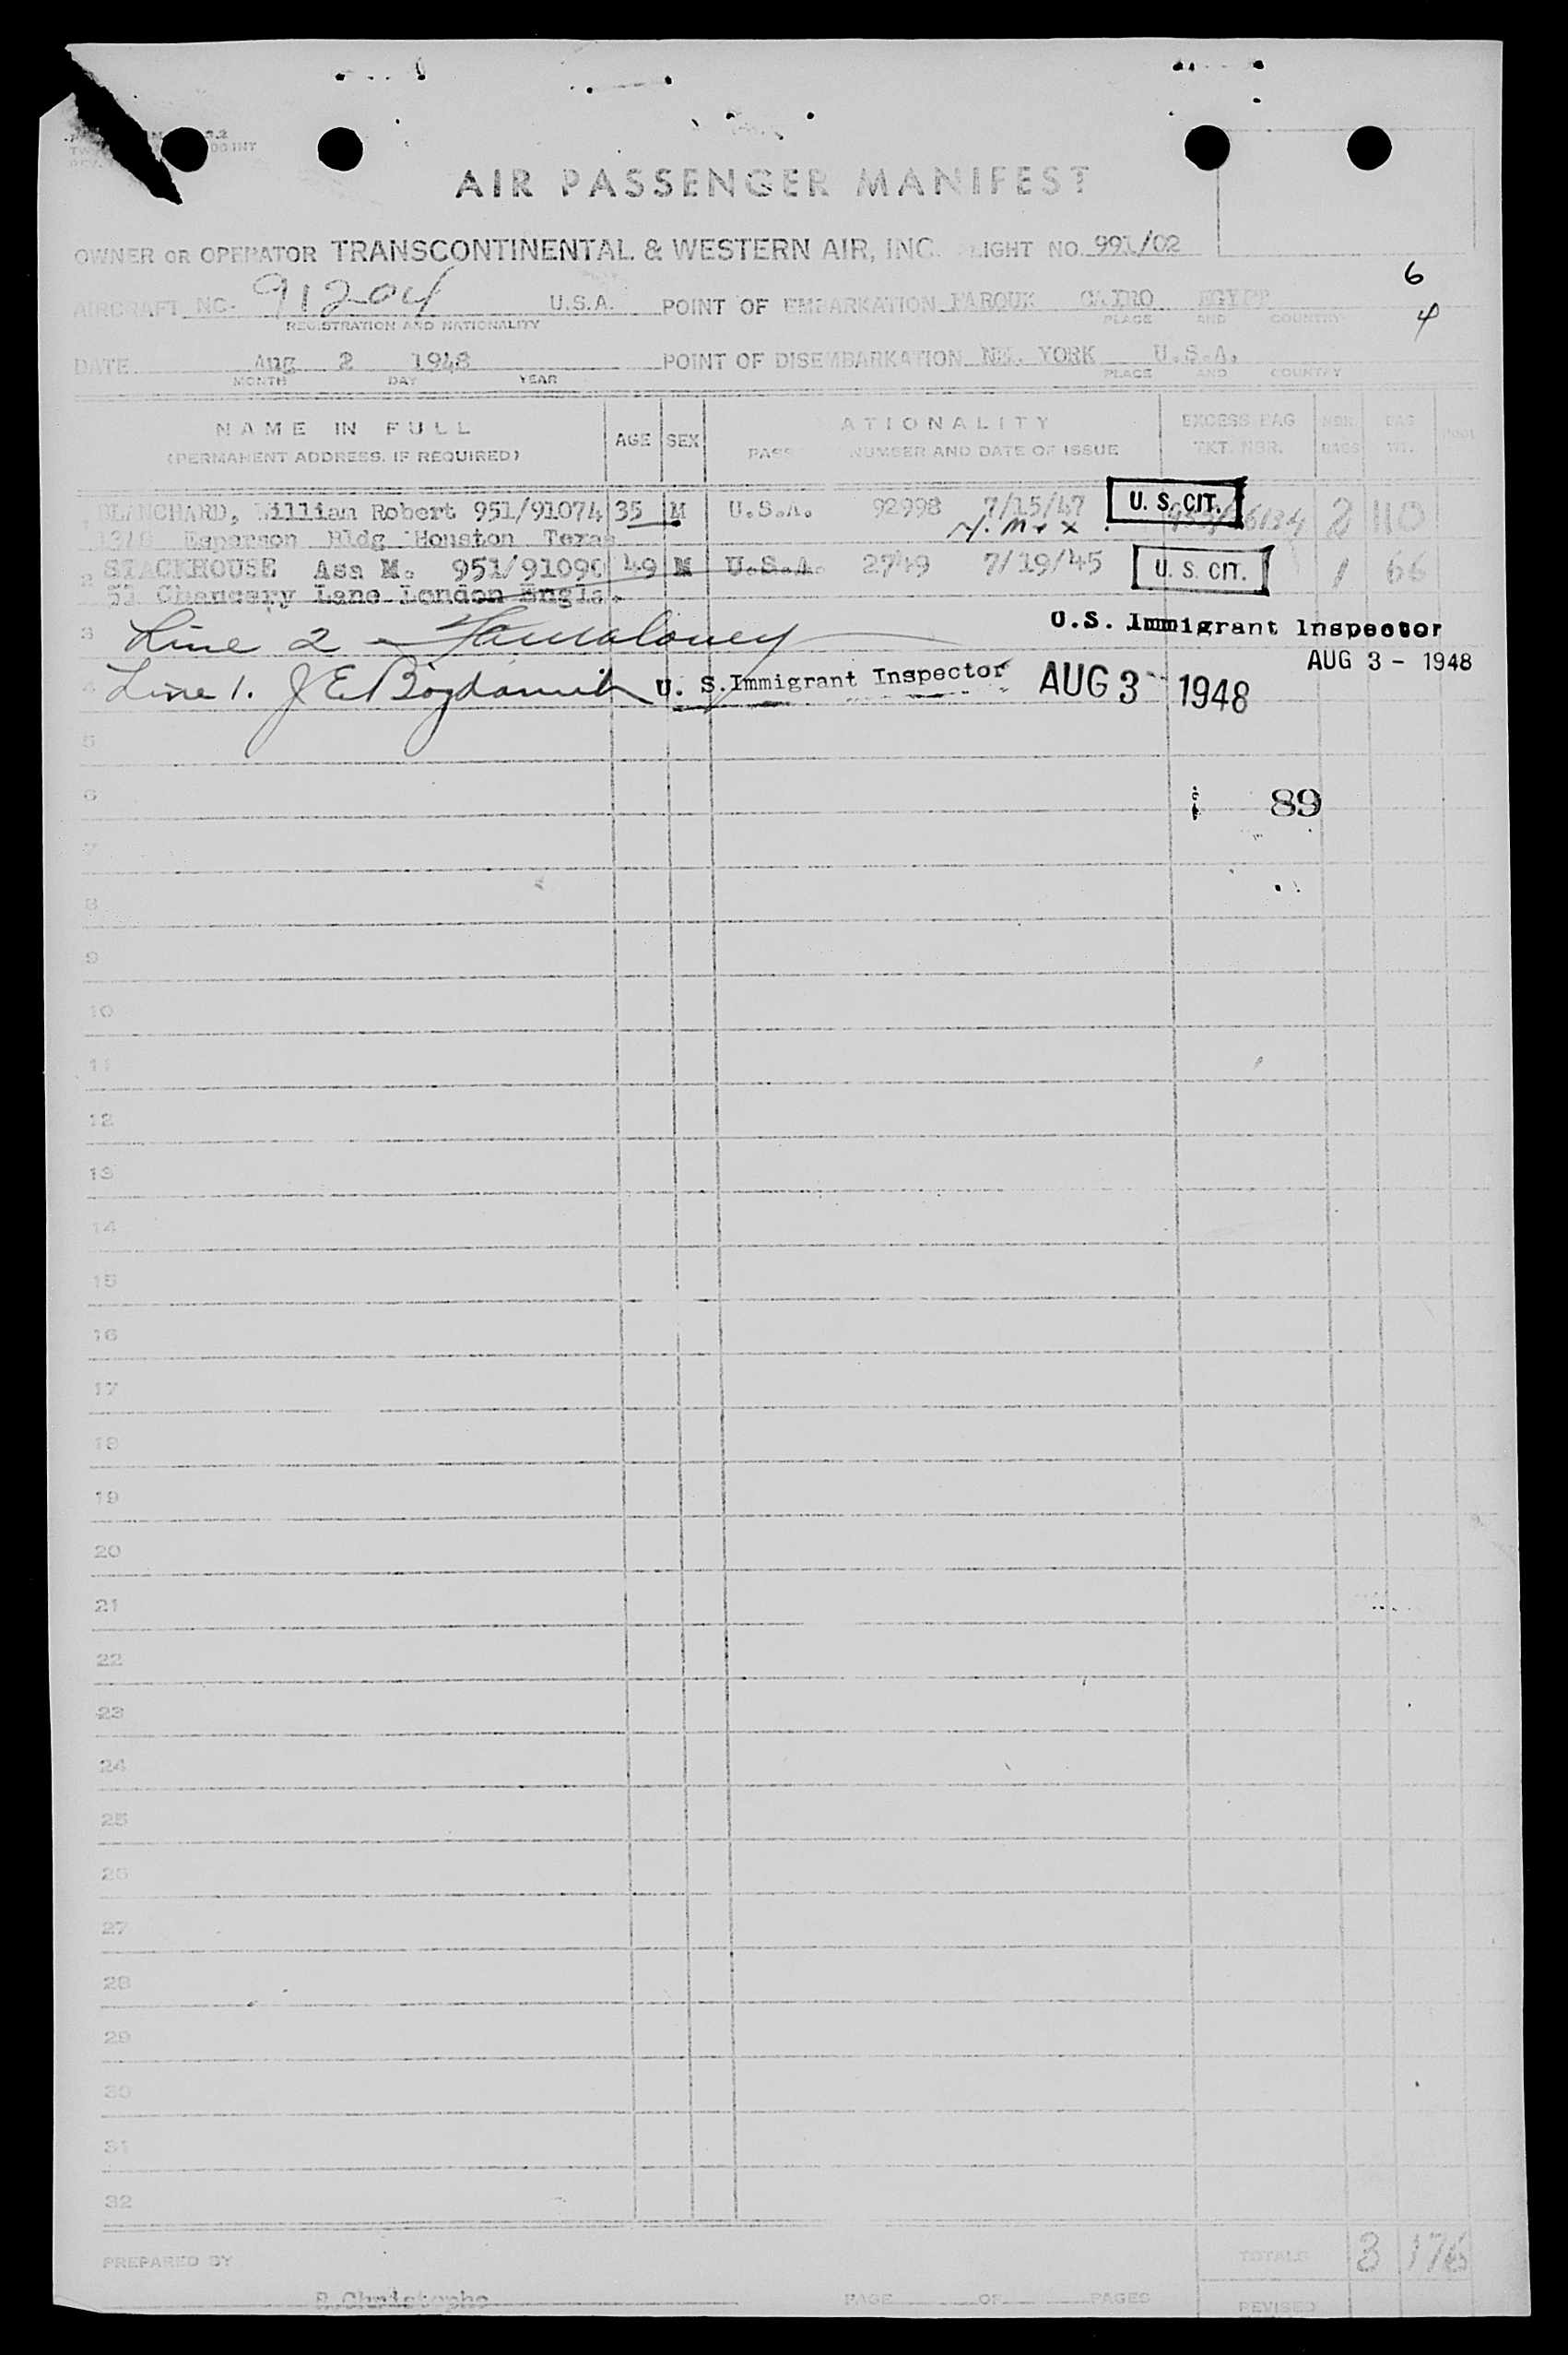 AIR PASSENGER MANIFEST
OWNER OR OPERATOR TRANSCONTINENTAL & WESTERN AIR, INC. LIGHT NO. 991/02
6
AIRCRAFT NC- 91204 U.S.A. POINT OF EMBARKATION FAROUK CAIRO EGYPT
REGISTRATION AND NATIONALITY PLACE AND COUNTRY
4
DATE Aug 2 1948 POINT OF DISEMBARKATION NEW YORK U.S.A.
MONTH DAY YEAR PLACE AND COUNTRY
NAME IN FULL AGE SEX ATIONALITY EXCESS BAG NBR. BAG
(PERMANENT ADDRESS, IF REQUIRED) PASS NUMBER AND DATE OF ISSUE TKT. NBR. BAGS WT.
BLANCHARD, Willian Robert 951/91074 35 M U.S.A. 92998 7/15/47 U. S. CIT. 2 110
Esperson Bldg Houston Texas
2 STACKHOUSE Asa M. 951/91090 49 M U.S.A. 2749 7/19/45 U. S. CIT. 1 66
51 Chancery Lane London Engla.
3 Line 2 U.S. Immigrant Inspector
AUG 3 - 1948
4 Line 1. J E U. S. Immigrant Inspector AUG 3 1948
5
6 89
7
8
9
10
11
12
13
14
15
16
17
18
19
20
21
22
23
24
25
26
27
28
29
30
31
32
PREPARED BY TOTALS 3 176
R.Christophe PAGE OF PAGES REVISED